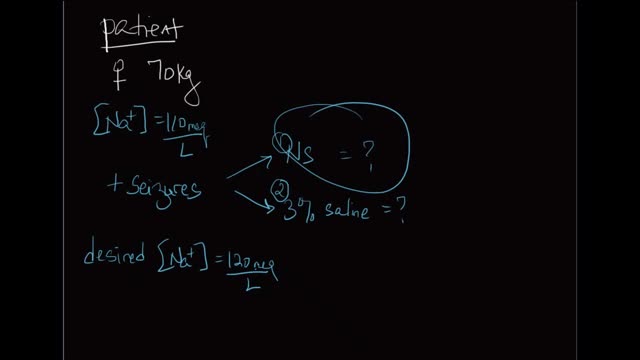 patient
♀ 70kg
[Na+] = 110 meq/L
+ seizures
① NS = ?
② 3% saline = ?
desired [Na+] = 120 meq/L